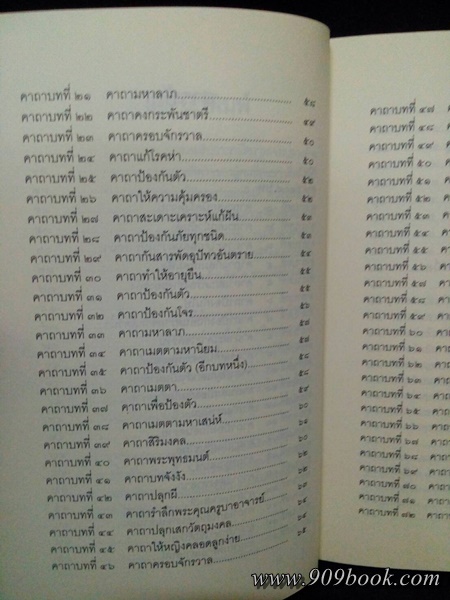 คาถาบทที่ ๒๑ คาถามหาลาภ
คาถาบทที่ ๒๒ คาถาคงกระพันชาตรี ๔๙
คาถาบทที่ ๒๓ คาถาครอบจักรวาล ๕๐
คาถาบทที่ ๒๔ คาถาแก้โรคห่า ๕๐
คาถาบทที่ ๒๕ คาถาป้องกันตัว ๕๒
คาถาบทที่ ๒๖ คาถาให้ความคุ้มครอง ๕๒
คาถาบทที่ ๒๗ คาถาสะเดาะเคราะห์แก้ฝัน ๕๓
คาถาบทที่ ๒๘ คาถาป้องกันภัยทุกชนิด ๕๓
คาถาบทที่ ๒๙ คาถากันสารพัดอุปัทวอันตราย
คาถาบทที่ ๓๐ คาถาทำให้อายุยืน
คาถาบทที่ ๓๑ คาถาป้องกันตัว
คาถาบทที่ ๓๒ คาถาป้องกันโจร
คาถาบทที่ ๓๓ คาถามหาลาภ
คาถาบทที่ ๓๔ คาถาเมตตามหานิยม
คาถาบทที่ ๓๕ คาถาป้องกันตัว (อีกบทหนึ่ง)
คาถาบทที่ ๓๖ คาถาเมตตา
คาถาบทที่ ๓๗ คาถาเพื่อป้องตัว
คาถาบทที่ ๓๘ คาถาเมตตามหาเสน่ห์
คาถาบทที่ ๓๙ คาถาสิริมงคล
คาถาบทที่ ๔๐ คาถาพระพุทธมนต์
คาถาบทที่ ๔๑ คาถาบทจังงัง
คาถาบทที่ ๔๒ คาถาปลุกผี
คาถาบทที่ ๔๓ คาถารำลึกพระคุณครูบาอาจารย์
คาถาบทที่ ๔๔ คาถาปลุกเสกวัตถุมงคล
คาถาบทที่ ๔๕ คาถาให้หญิงคลอดลูกง่าย
คาถาบทที่ ๔๖ คาถาครอบจักรวาล
คาถาบทที่ ๔๗
คาถาบทที่ ๔๘
คาถาบทที่ ๔๙
คาถาบทที่ ๕๐
คาถาบทที่ ๕๑
คาถาบทที่ ๕๒
คาถาบทที่ ๕๓
คาถาบทที่ ๕๔
คาถาบทที่ ๕๕
คาถาบทที่ ๕๖
คาถาบทที่ ๕๗
คาถาบทที่ ๕๘
คาถาบทที่ ๕๙
คาถาบทที่ ๖๐
คาถาบทที่ ๖๑
คาถาบทที่ ๖๒
คาถาบทที่ ๖๓
คาถาบทที่ ๖๔
คาถาบทที่ ๖๕
คาถาบทที่ ๖๖
คาถาบทที่ ๖๗
คาถาบทที่ ๖๘
คาถาบทที่ ๖๙
คาถาบทที่ ๗๐
คาถาบทที่ ๗๑
คาถาบทที่ ๗๒
www.909book.com